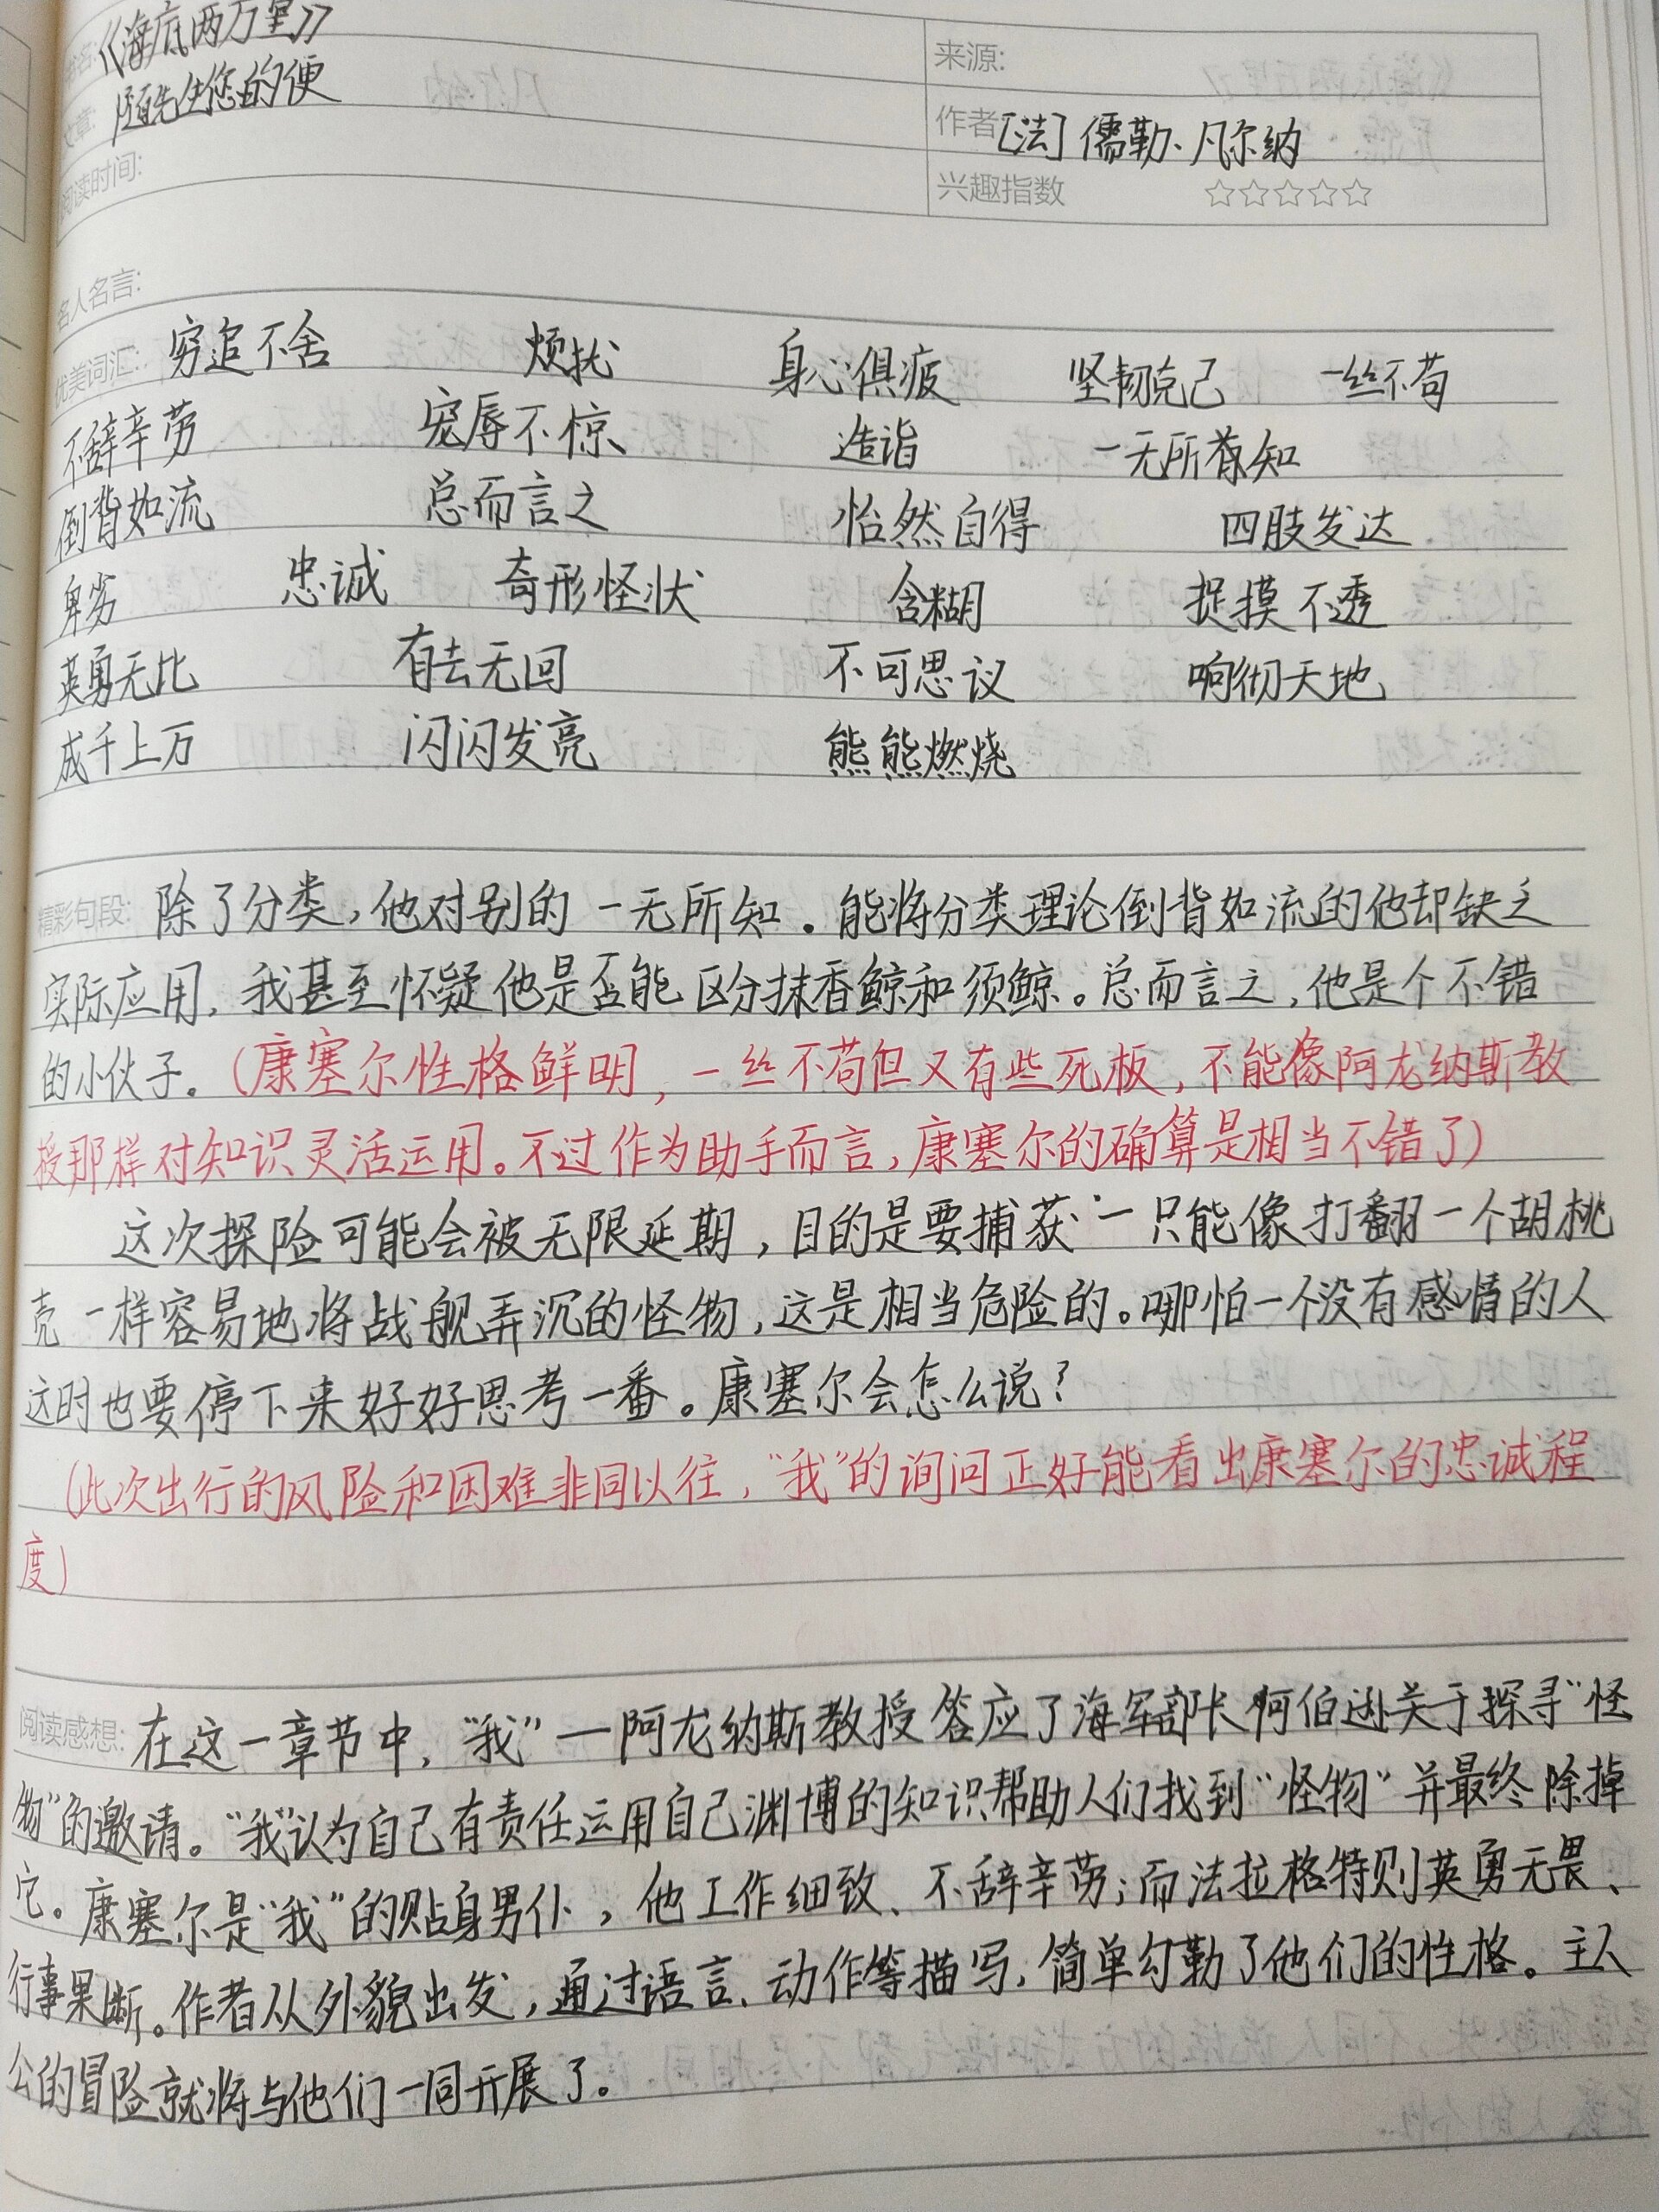 书名:《海底两万里》
来源:
文章: 随先生您的便
作者[法]儒勒·凡尔纳
阅读时间:
兴趣指数 ☆☆☆☆☆
名人名言:
优美词汇: 穷追不舍 烦扰 身心俱疲 坚韧克己 一丝不苟
不辞辛劳 宠辱不惊 造诣 一无所知
倒背如流 总而言之 怡然自得 四肢发达
卑劣 忠诚 奇形怪状 含糊 捉摸不透
英勇无比 有去无回 不可思议 响彻天地
成千上万 闪闪发亮 熊熊燃烧
精彩句段: 除了分类,他对别的一无所知。能将分类理论倒背如流的他却缺乏
实际应用,我甚至怀疑他是否能区分抹香鲸和须鲸。总而言之,他是个不错
的小伙子。(康塞尔性格鲜明,一丝不苟但又有些死板,不能像阿龙纳斯教
授那样对知识灵活运用。不过作为助手而言,康塞尔的确算是相当不错了)
这次探险可能会被无限延期,目的是要捕获一只能像打翻一个胡桃
壳一样容易地将战舰弄沉的怪物,这是相当危险的。哪怕一个没有感情的人
这时也要停下来好好思考一番。康塞尔会怎么说?
(此次出行的风险和困难非同以往,“我”的询问正好能看出康塞尔的忠诚程
度)
阅读感想: 在这一章节中,“我”—阿龙纳斯教授答应了海军部长何伯逊关于探寻“怪
物”的邀请。“我”认为自己有责任运用自己渊博的知识帮助人们找到“怪物”并最终除掉
它。康塞尔是“我”的贴身男仆,他工作细致、不辞辛劳;而法拉格特则英勇无畏、
行事果断。作者从外貌出发,通过语言、动作等描写,简单勾勒了他们的性格。主人
公的冒险就将与他们一同开展了。